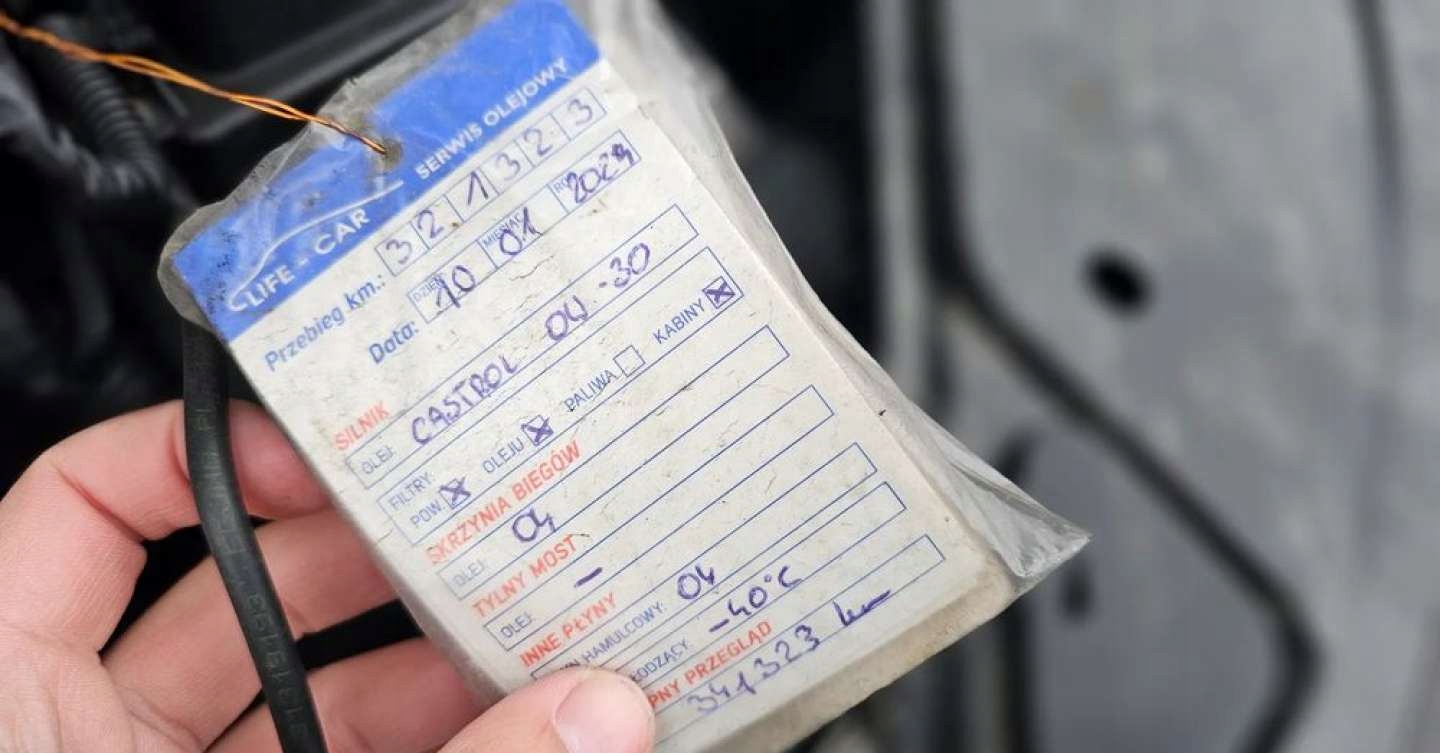 LIFE - CAR
SERWIS OLEJOWY
Przebieg km.: 321323
DZIEŃ MIESIĄC
Data: 10 01 2024
SILNIK
OLEJ: CASTROL 04 -30
FILTRY:
POW. OLEJU PALIWA KABINY
SKRZYNIA BIEGÓW
OLEJ: 04
TYLNY MOST
OLEJ: -
INNE PŁYNY
HAMULCOWY: 04
ODZĄCY: -40°C
PNY PRZEGLĄD
341323 km